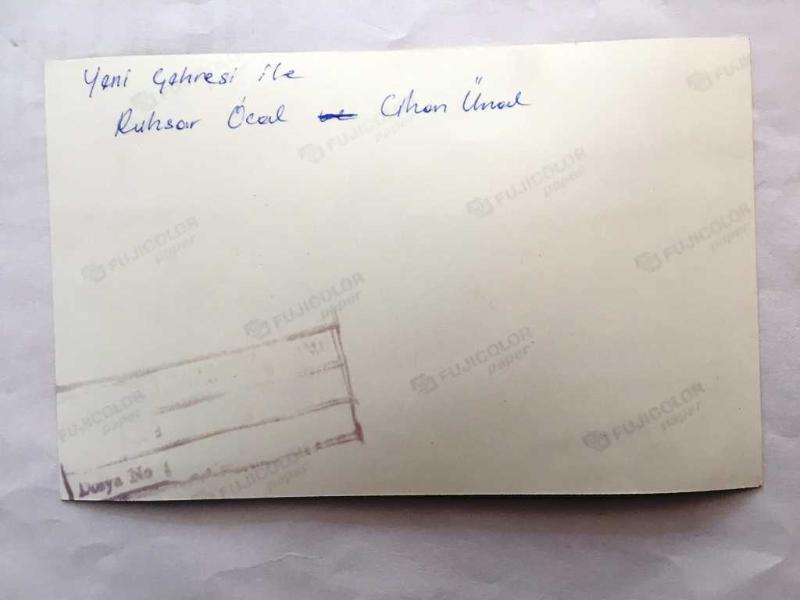 Yeni Çehresi ile
Ruhsar Öcal ve Cihan Ünal
FUJICOLOR paper
FUJICOLOR paper
FUJICOLOR paper
FUJICOLOR paper
FUJICOLOR paper
FUJICOLOR paper
FUJICOLOR paper
FUJICOLOR paper
FUJICOLOR paper
Dosya No :